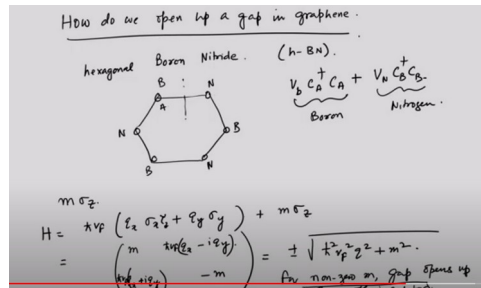 How do we open up a gap in graphene.
hexagonal Boron Nitride. (h-BN).
B N
A
N B
B N
V_b C_A^+ C_A + V_N C_B^+ C_B
Boron Nitrogen
mσ_z.
H = ħv_F (q_x σ_x τ_z + q_y σ_y) + mσ_z
= ( m ħv_F(q_x - iq_y) = ± √ħ²v_F²q² + m².
+iq_y) -m ) For non-zero m, gap opens up